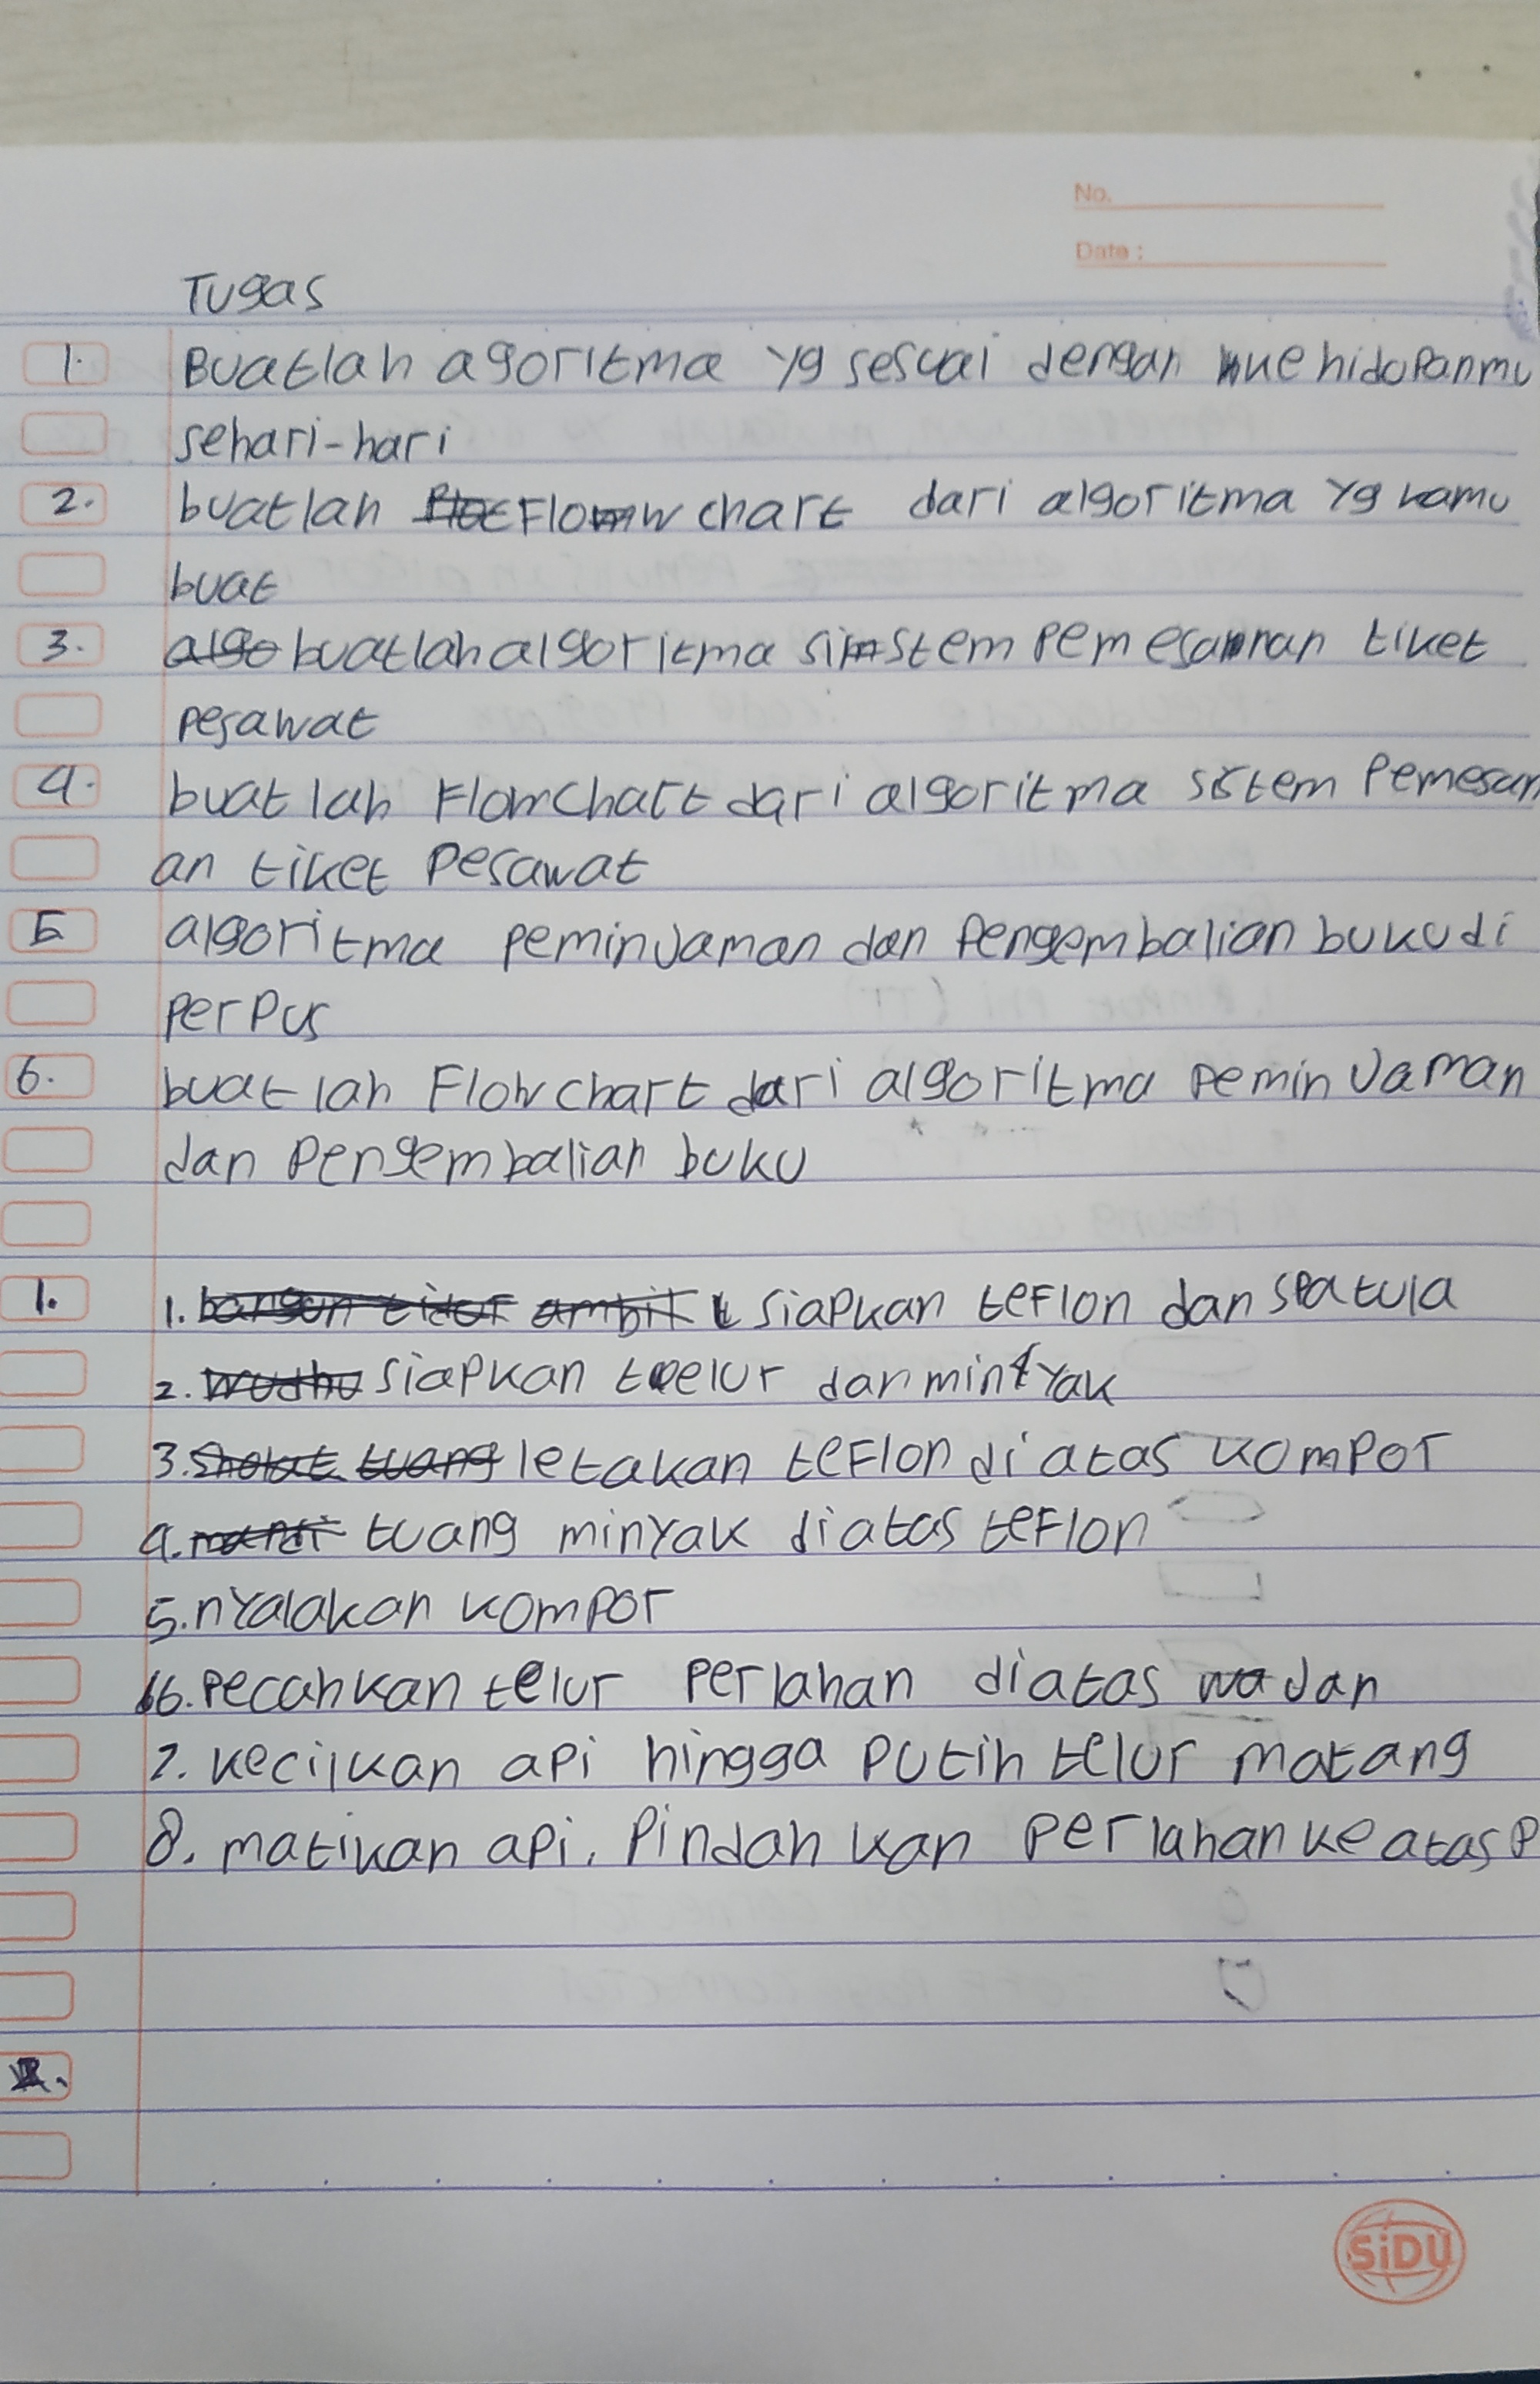 No.
Date :
Tugas
1. Buatlah agoritma yg sesuai dengan kehidupanmu
sehari-hari
2. buatlah Flowchart dari algoritma yg kamu
buat
3. buatlah algoritma sistem pemesanan tiket
pesawat
4. buatlah Flowchart dari algoritma sistem Pemesan
an tiket Pesawat
5 algoritma peminjaman dan Pengembalian buku di
perpus
6. buatlah Flowchart dari algoritma peminjaman
dan Pengembalian buku
1. 1. siapkan teflon dan spatula
2. siapkan telur dan minyak
3. letakan teflon diatas kompor
4. tuang minyak diatas teflon
5. nyalakan kompor
6. pecahkan telur perlahan diatas wajan
7. kecilkan api hingga putih telur matang
8. matikan api, Pindahkan perlahan ke atas P
2.
SiDU